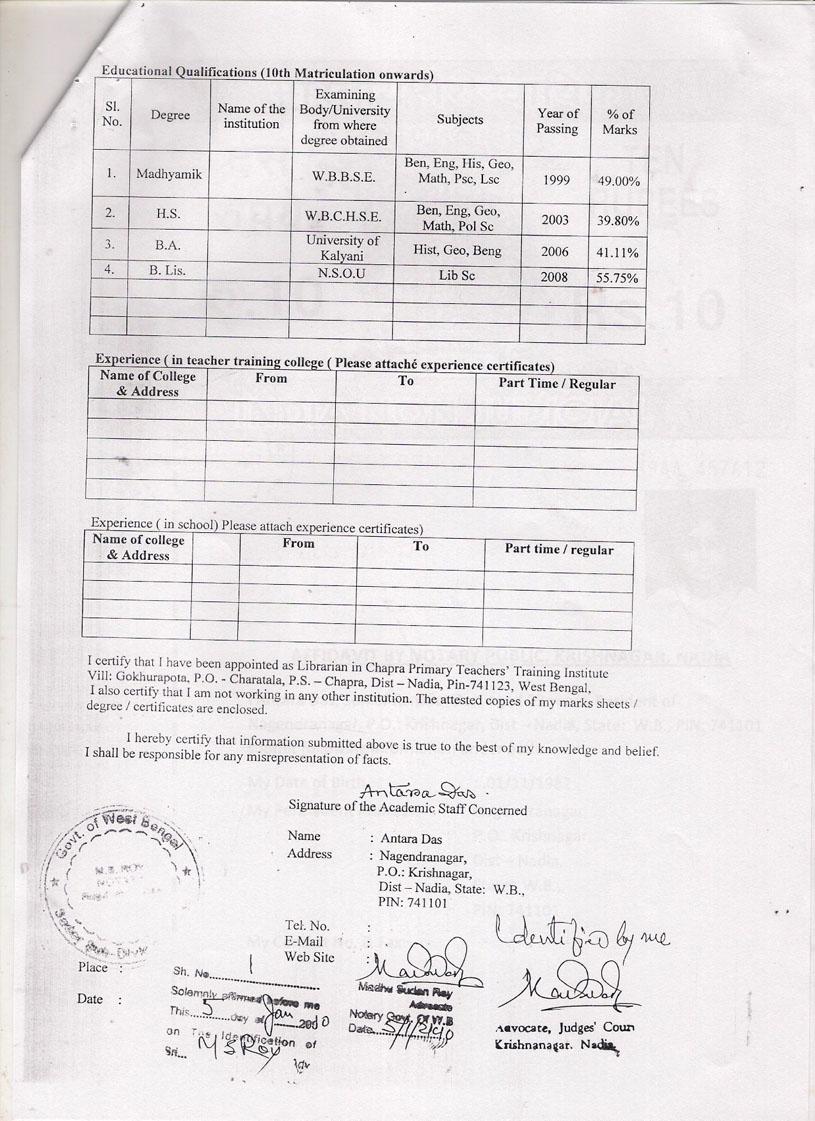 Educational Qualifications (10th Matriculation onwards)
Sl. No. Degree Name of the institution Examining Body/University from where degree obtained Subjects Year of Passing % of Marks
1. Madhyamik W.B.B.S.E. Ben, Eng, His, Geo, Math, Psc, Lsc 1999 49.00%
2. H.S. W.B.C.H.S.E. Ben, Eng, Geo, Math, Pol Sc 2003 39.80%
3. B.A. University of Kalyani Hist, Geo, Beng 2006 41.11%
4. B. Lis. N.S.O.U Lib Sc 2008 55.75%
Experience ( in teacher training college ( Please attaché experience certificates)
Name of College & Address From To Part Time / Regular
Experience ( in school) Please attach experience certificates)
Name of college & Address From To Part time / regular
I certify that I have been appointed as Librarian in Chapra Primary Teachers' Training Institute
Vill: Gokhurapota, P.O. - Charatala, P.S. – Chapra, Dist – Nadia, Pin-741123, West Bengal,
I also certify that I am not working in any other institution. The attested copies of my marks sheets /
degree / certificates are enclosed.
I hereby certify that information submitted above is true to the best of my knowledge and belief.
I shall be responsible for any misrepresentation of facts.
Antara Das.
Signature of the Academic Staff Concerned
Name : Antara Das
Address : Nagendranagar,
P.O.: Krishnagar,
Dist – Nadia, State: W.B.,
PIN: 741101
Tel. No. :
E-Mail :
Web Site :
Govt. of West Bengal
N.S. ROY
Place :
Date :
Sh. No. 1
Solemnly affirmed before me
This 5 day of Jan 2010
on The Identification of
Sri... M S Roy
Adv
Madhu Sudan Roy
Advocate
Notary Govt. Of W.B
Date 5/1/2010
Identified by me
Advocate, Judges' Court
Krishnanagar. Nadia